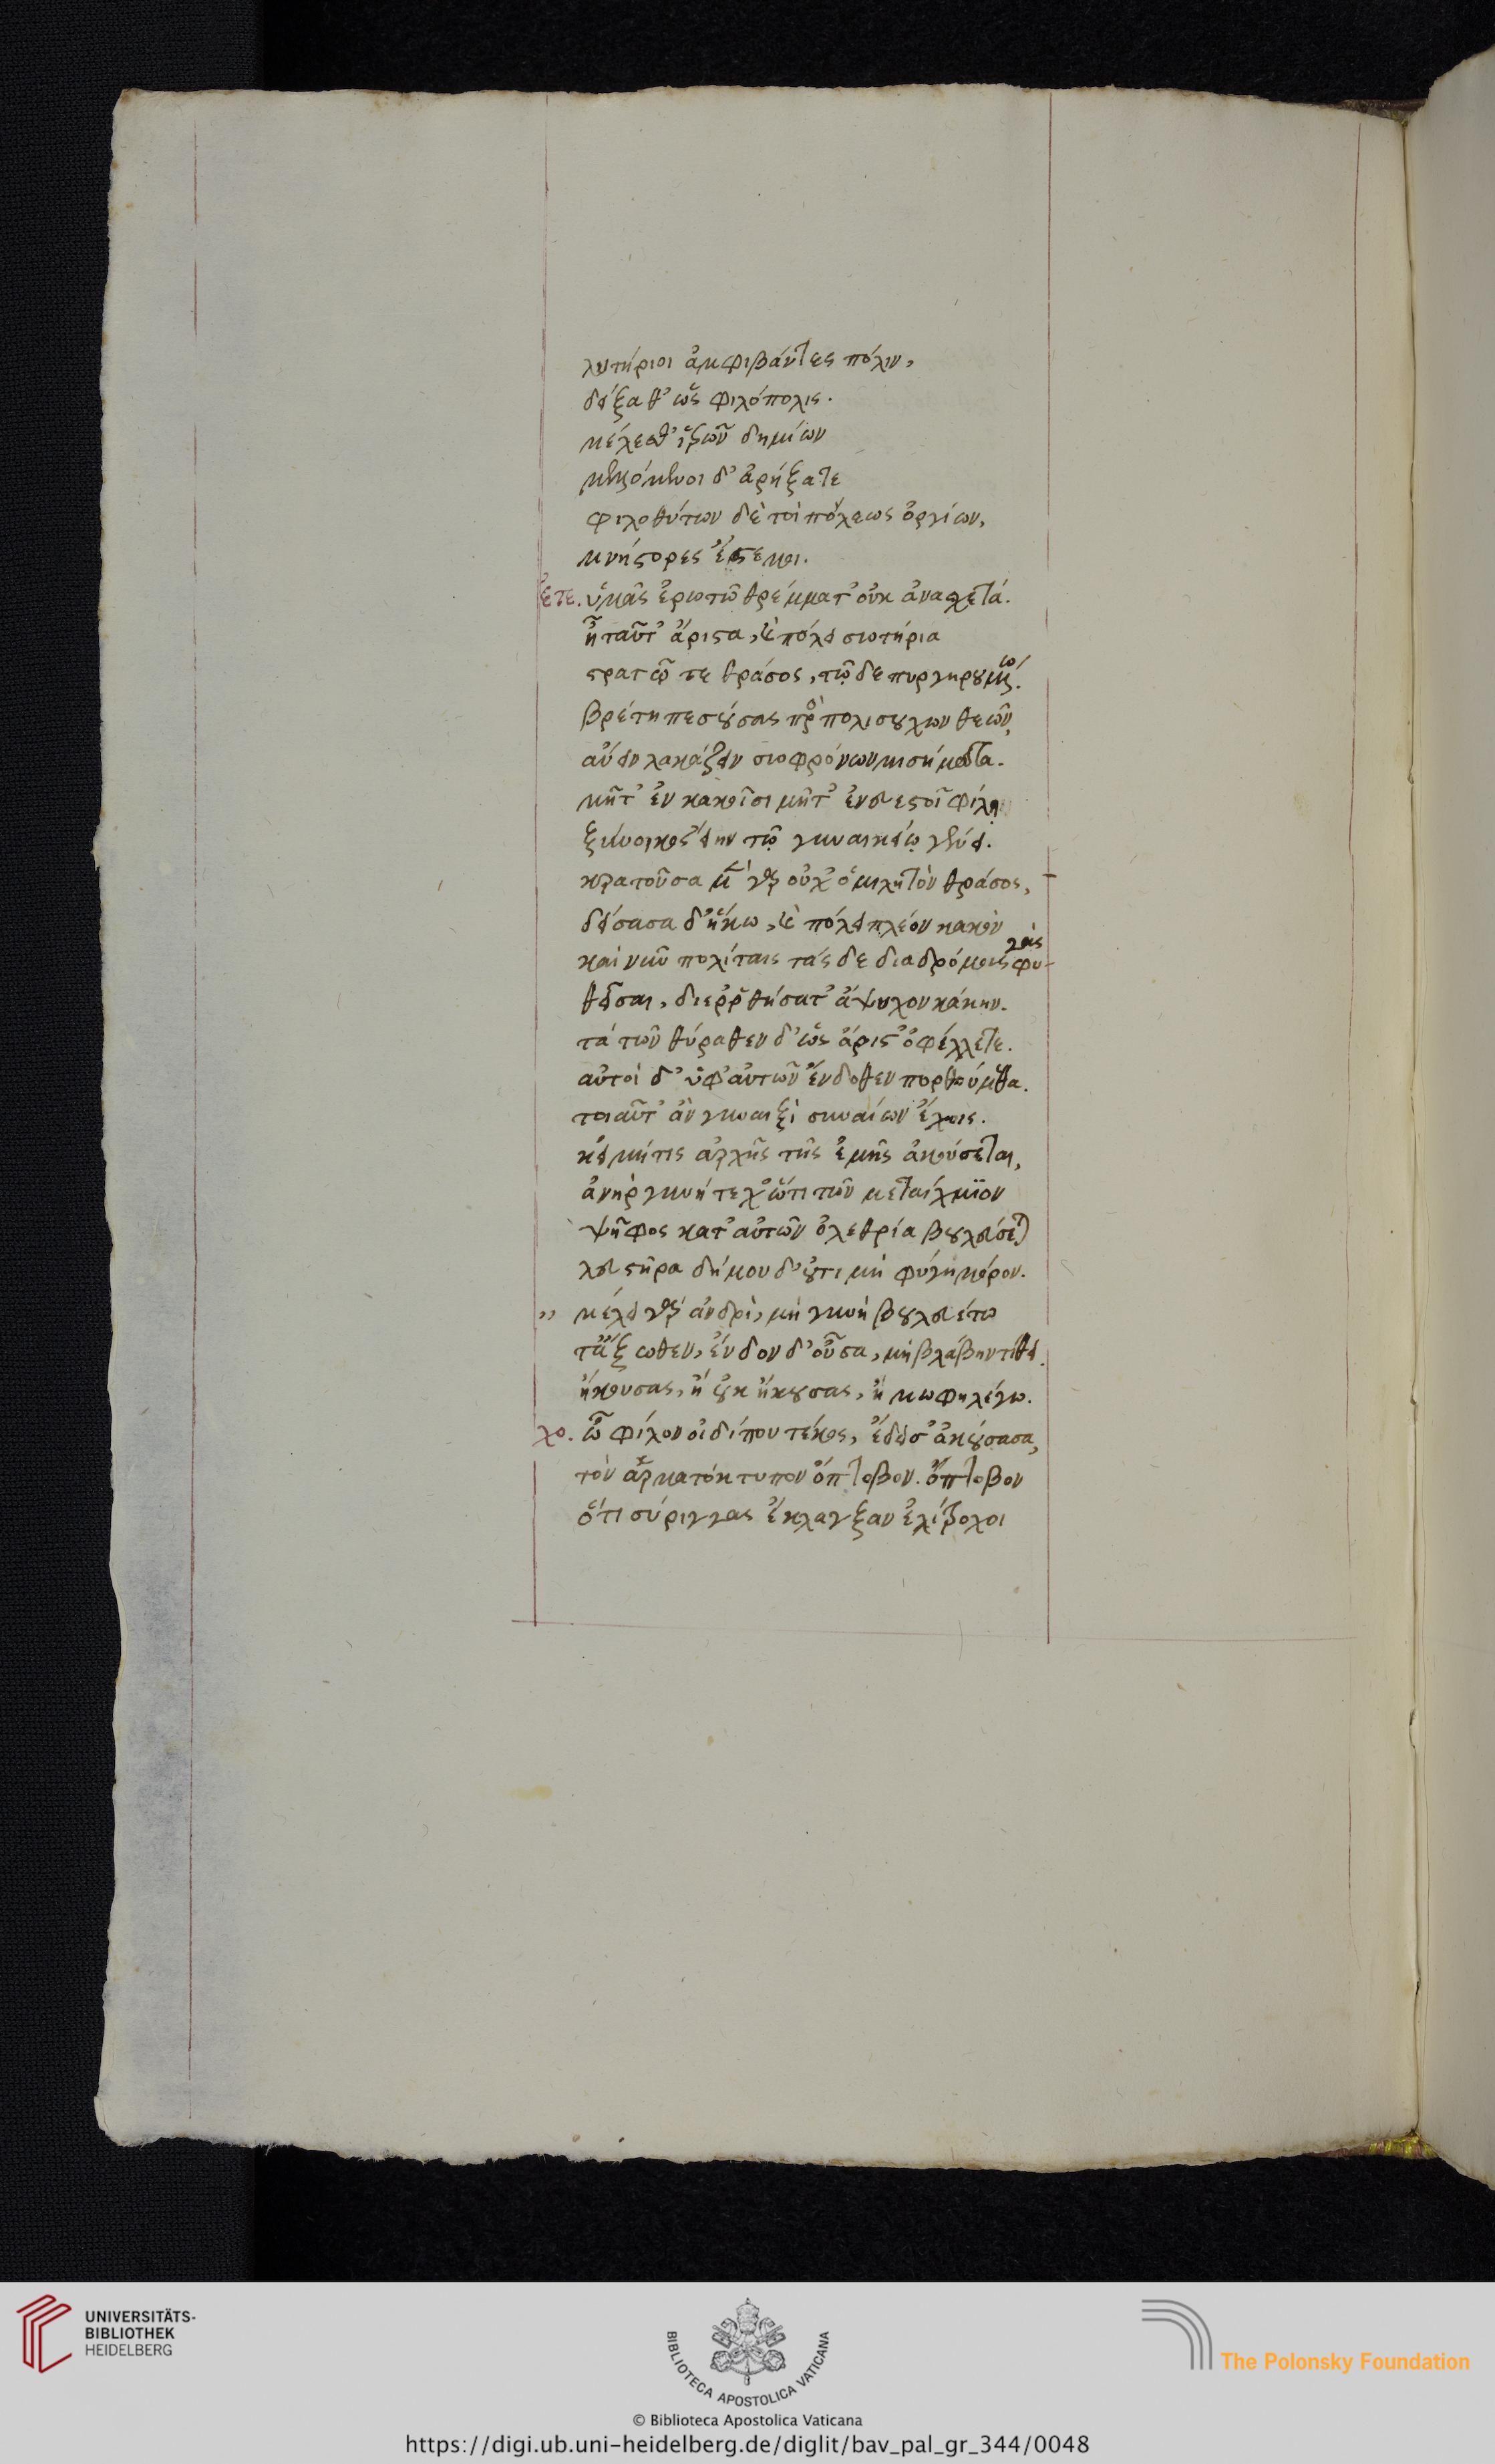 λυτήριοι ἀμφιβάντες πόλιν,
δείξαθ' ὡς φιλόπολις.
μέλεσθ' ἱερῶν δημίων
μελόμενοι δ' ἀρήξατε
φιλοθύτων δέ τοι πόλεως ὀργίων,
μνήστορες ἐστέ μοι.
ἐτε. ὑμᾶς ἐρωτῶ θρέμματ' οὐκ ἀνασχετά.
ἦ ταῦτ' ἄριστα, καὶ πόλει σωτήρια
στρατῷ τε θράσος, τῷδε πυργηρουμένῳ.
βρέτη πεσούσας πρὸς πολισσούχων θεῶν,
αὔειν λακάζειν σωφρόνων μισήματα.
μήτ' ἐν κακοῖσι μήτ' ἐν εὐεστοῖ φίλῃ
ξύνοικος εἴην τῷ γυναικείῳ γένει.
κρατοῦσα μὲν γὰρ οὐχ ὁμιλητὸν θράσος,
δείσασα δ' οἴκῳ, καὶ πόλει πλέον κακόν
καὶ νῦν πολίταις τάσδε διαδρόμοις φυγὰς
θεῖσαι, διερροθήσατ' ἄψυχον κάκην.
τὰ τῶν θύραθεν δ' ὡς ἄριστ' ὀφέλλετε.
αὐτοὶ δ' ὑφ' αὑτῶν ἔνδοθεν πορθούμεθα.
τοιαῦτ' ἂν γυναιξὶ συνναίων ἔχοις.
κεἰ μή τις ἀρχῆς τῆς ἐμῆς ἀκούσεται,
ἀνὴρ γυνή τε χὤτι τῶν μεταίχμιον
ψῆφος κατ' αὐτῶν ὀλεθρία βουλεύσεται
λευστῆρα δήμου δ' οὔτι μὴ φύγῃ μόρον.
" μέλει γὰρ ἀνδρὶ, μὴ γυνὴ βουλευέτω
τἄξωθεν, ἔνδον δ' οὖσα, μὴ βλάβην τίθει.
ἤκουσας, ἢ οὐκ ἤκουσας, ἢ κωφῇ λέγω.
χο. ὦ φίλον οἰδίπου τέκος, ἔδεισ' ἀκούσασα,
τὸν ἁρματόκτυπον ὄπτοβον. ὄπτοβον
ὅτι σύριγγες ἔκλαγξαν ἑλίτροχοι
UNIVERSITÄTS-
BIBLIOTHEK
HEIDELBERG
BIBLIOTECA APOSTOLICA VATICANA
The Polonsky Foundation
© Biblioteca Apostolica Vaticana
https://digi.ub.uni-heidelberg.de/diglit/bav_pal_gr_344/0048